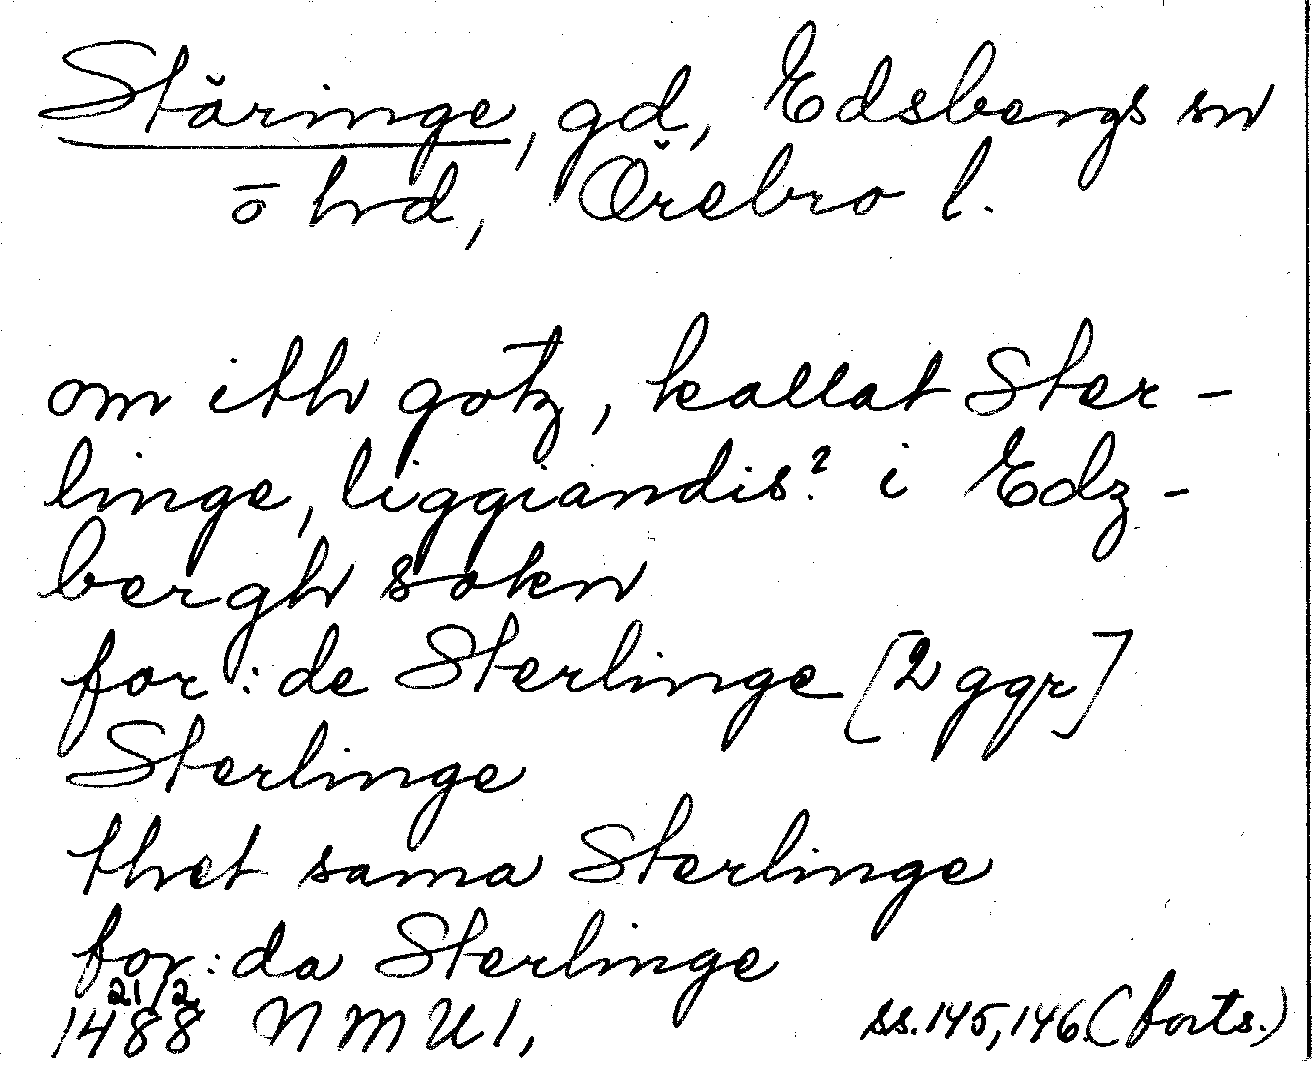 Stäringe, gd, Edsbergs sn
o hd, Örebro l.
om ith gotz, kallat Ster-
linge, liggiandis? i Edz-
bergh sokn
for: de Sterlinge [2 ggr]
Sterlinge
thet sama Sterlinge
for: da Sterlinge
21/2 1488 NMU 1, ss. 145, 146 (forts.)